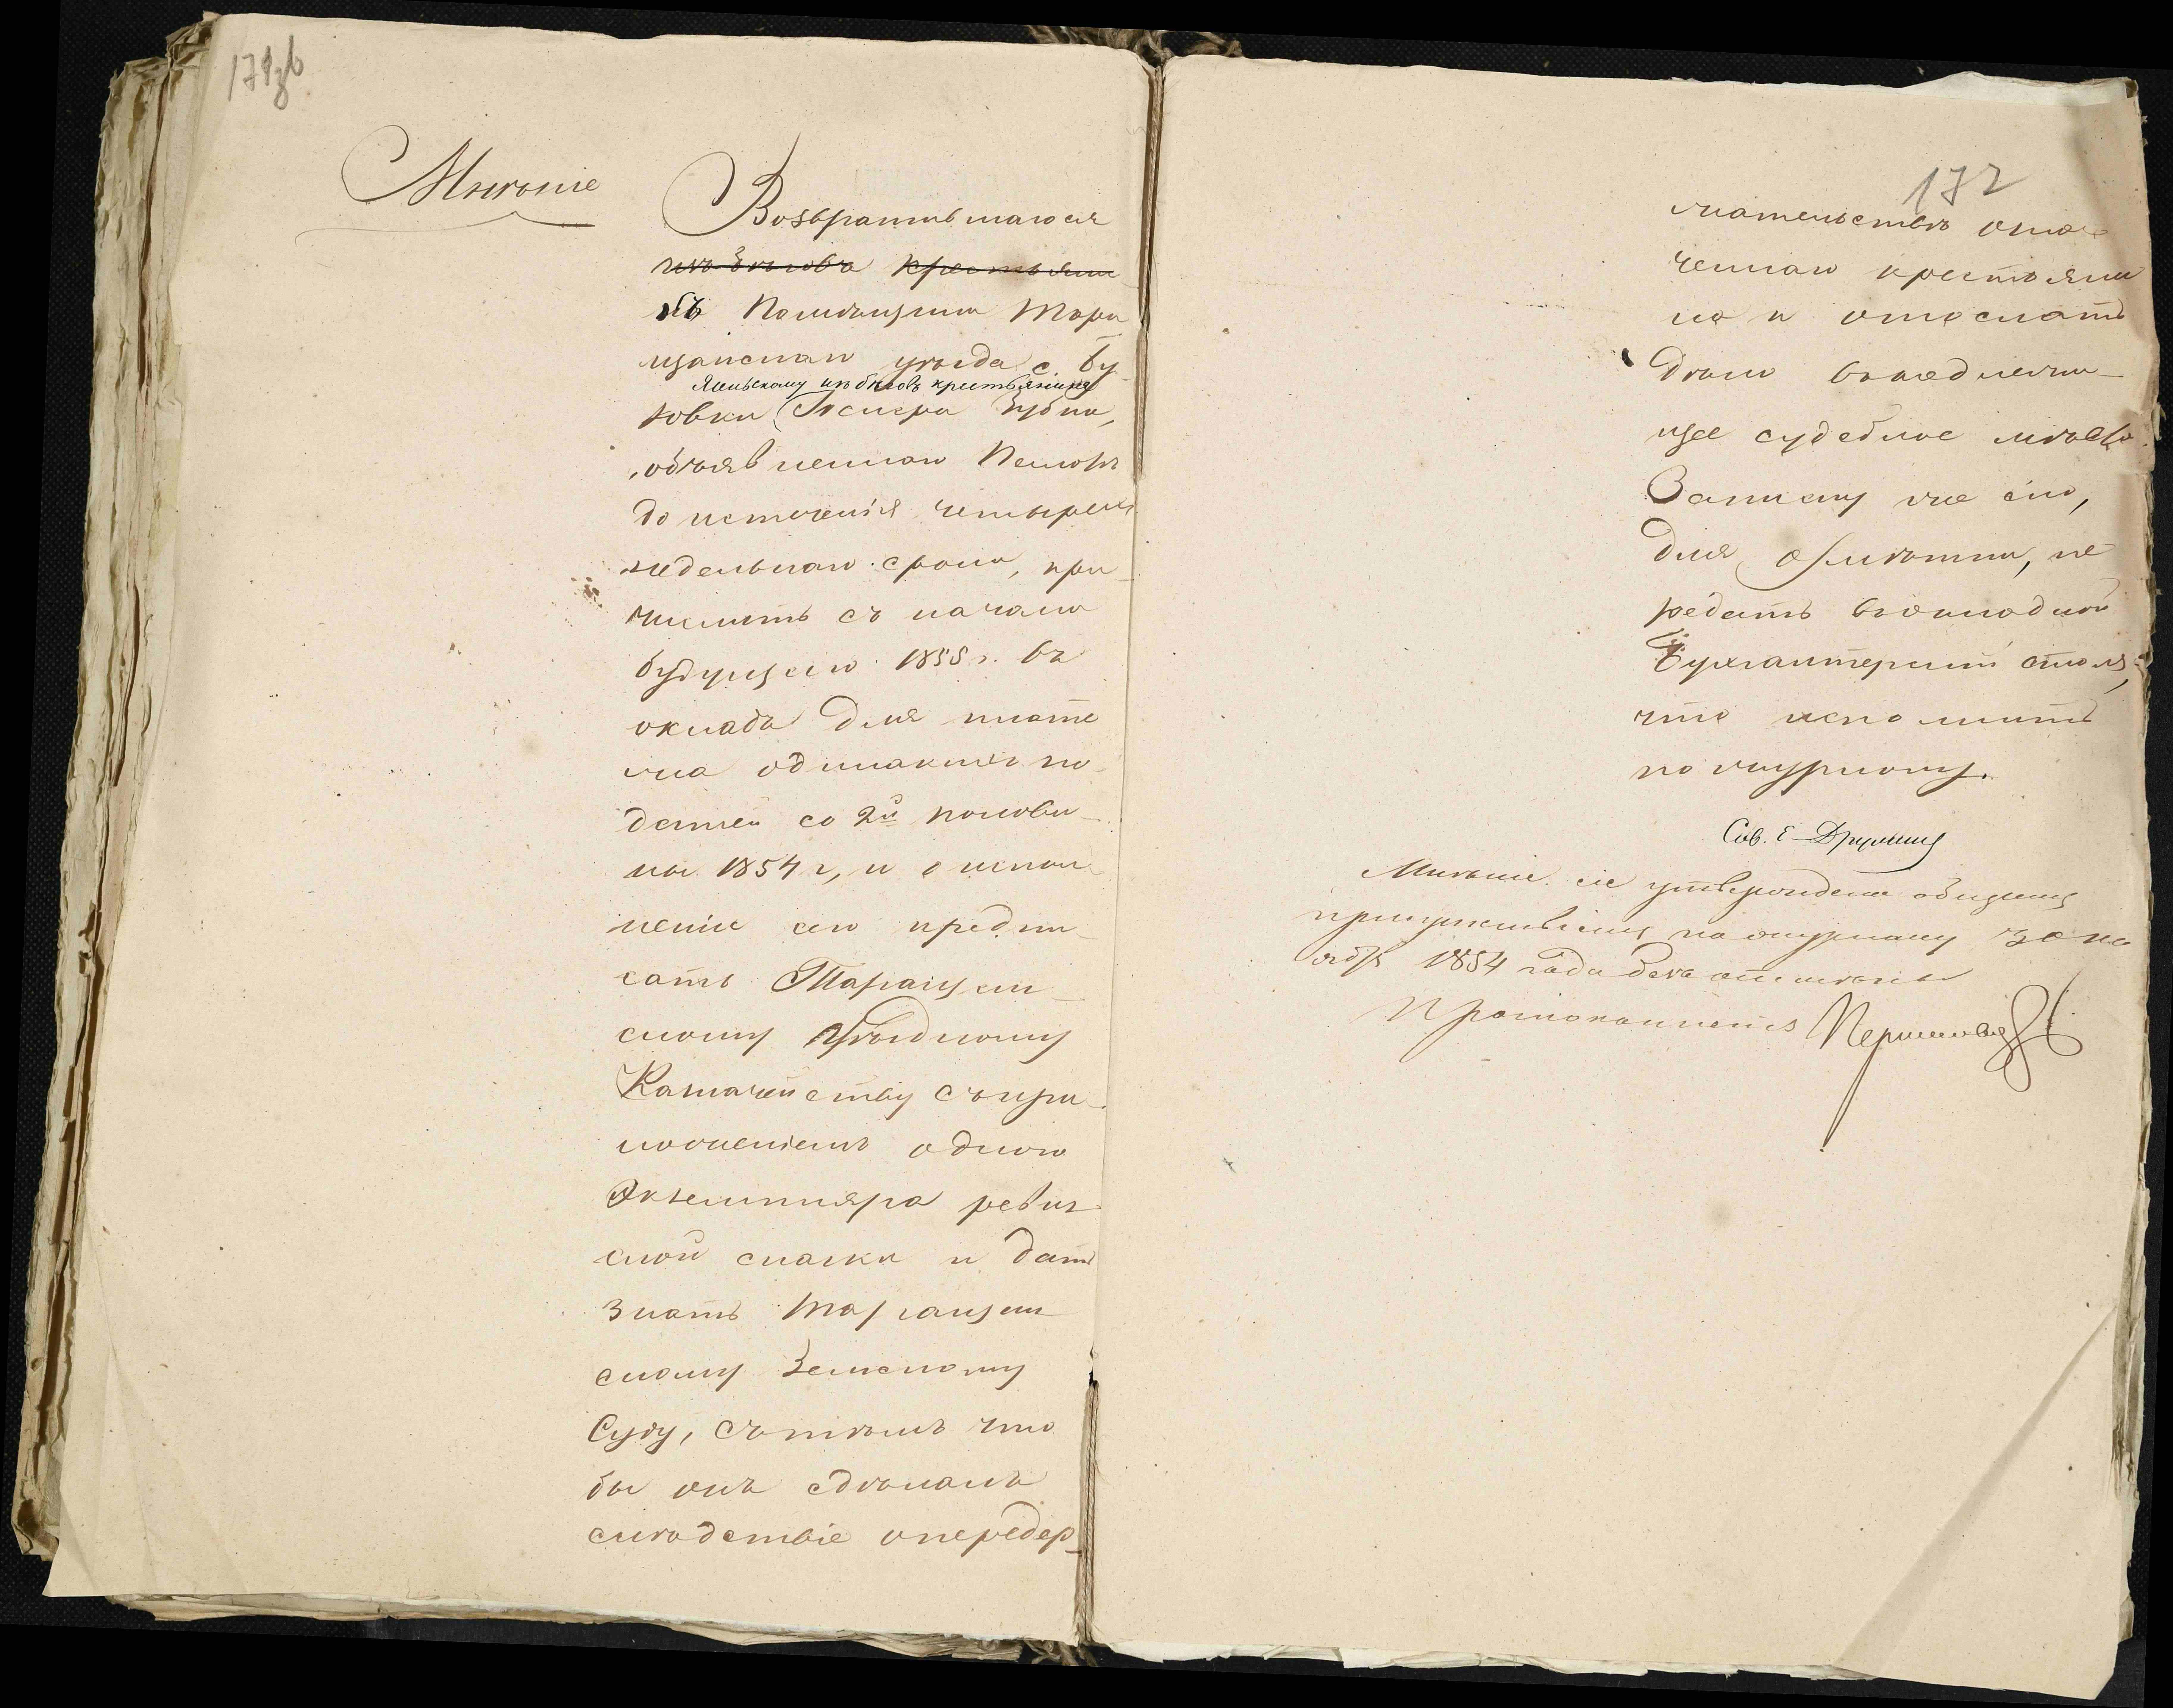 171зв
Мнѣніе
Возвратившагося
изъ бѣговъ крестьяни
къ Помѣщици Тара
щанскаго уѣзда с. Бу
изъ бѣговъ крестьянина
ковки Зубка,
объявленнаго
до истеченія четырехъ
недельнаго срока, при-
числить съ начала
будущаго 1855 г. въ
окладъ для плате
жа одинакихъ по-
датей со 2й полови-
ны 1854 г, и о испол-
неніи сего предпи-
сать Таращан-
скому Уѣздному
Казначейству съ при-
ложеніемъ одного
Экземпляра ревиз-
ской сказки и дать
знать Таращан-
скому Земскому
Суду, съ тѣмъ что
бы онъ сдѣлалъ
слѣдствіе о передер-
172
жательствѣ озна-
ченнаго крестьяни
на и отослать
дѣло въ надлежа-
щее судебное мѣсто.
Записку же сію,
для отмѣтки, пе
редать въ окладной
Бухгалтерскій столъ,
что исполнить
по журналу.
Сов. Е.
Мнѣніе сіе утверждено общимъ
присутствіемъ по журналу 30 но
ября 1854 года безъ отмѣны
Протоколистъ